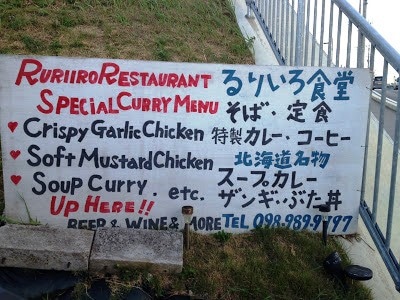 RURIIRO RESTAURANT るりいろ食堂
SPECIAL CURRY MENU そば・定食
♥ Crispy Garlic Chicken 特製カレー・コーヒー
♥ Soft Mustard Chicken 北海道名物
♥ Soup Curry. etc. スープカレー
UP HERE!! ザンギ・ぶた丼
BEER & WINE & MORE TEL